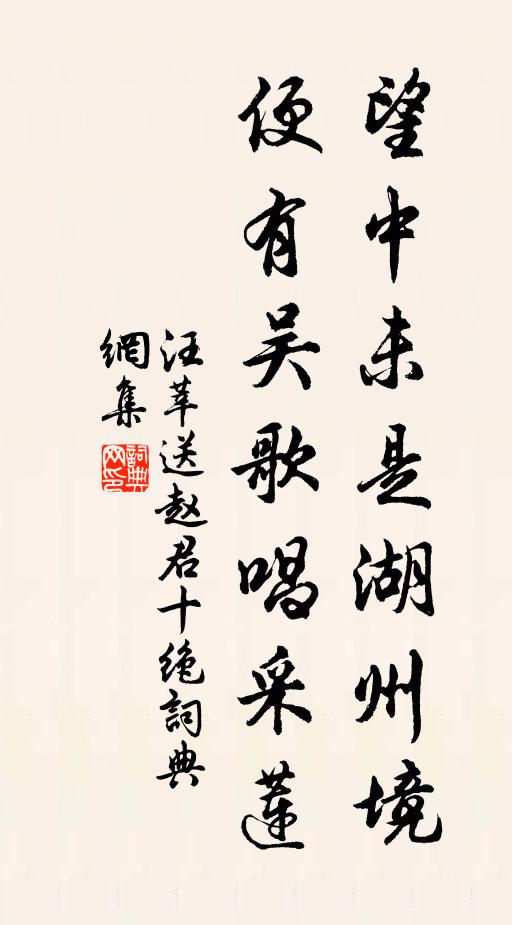 望中未是湖州境
便有吴歌唱采蓮
汪莘送赵君十绝詞典
網集
詞典
网印